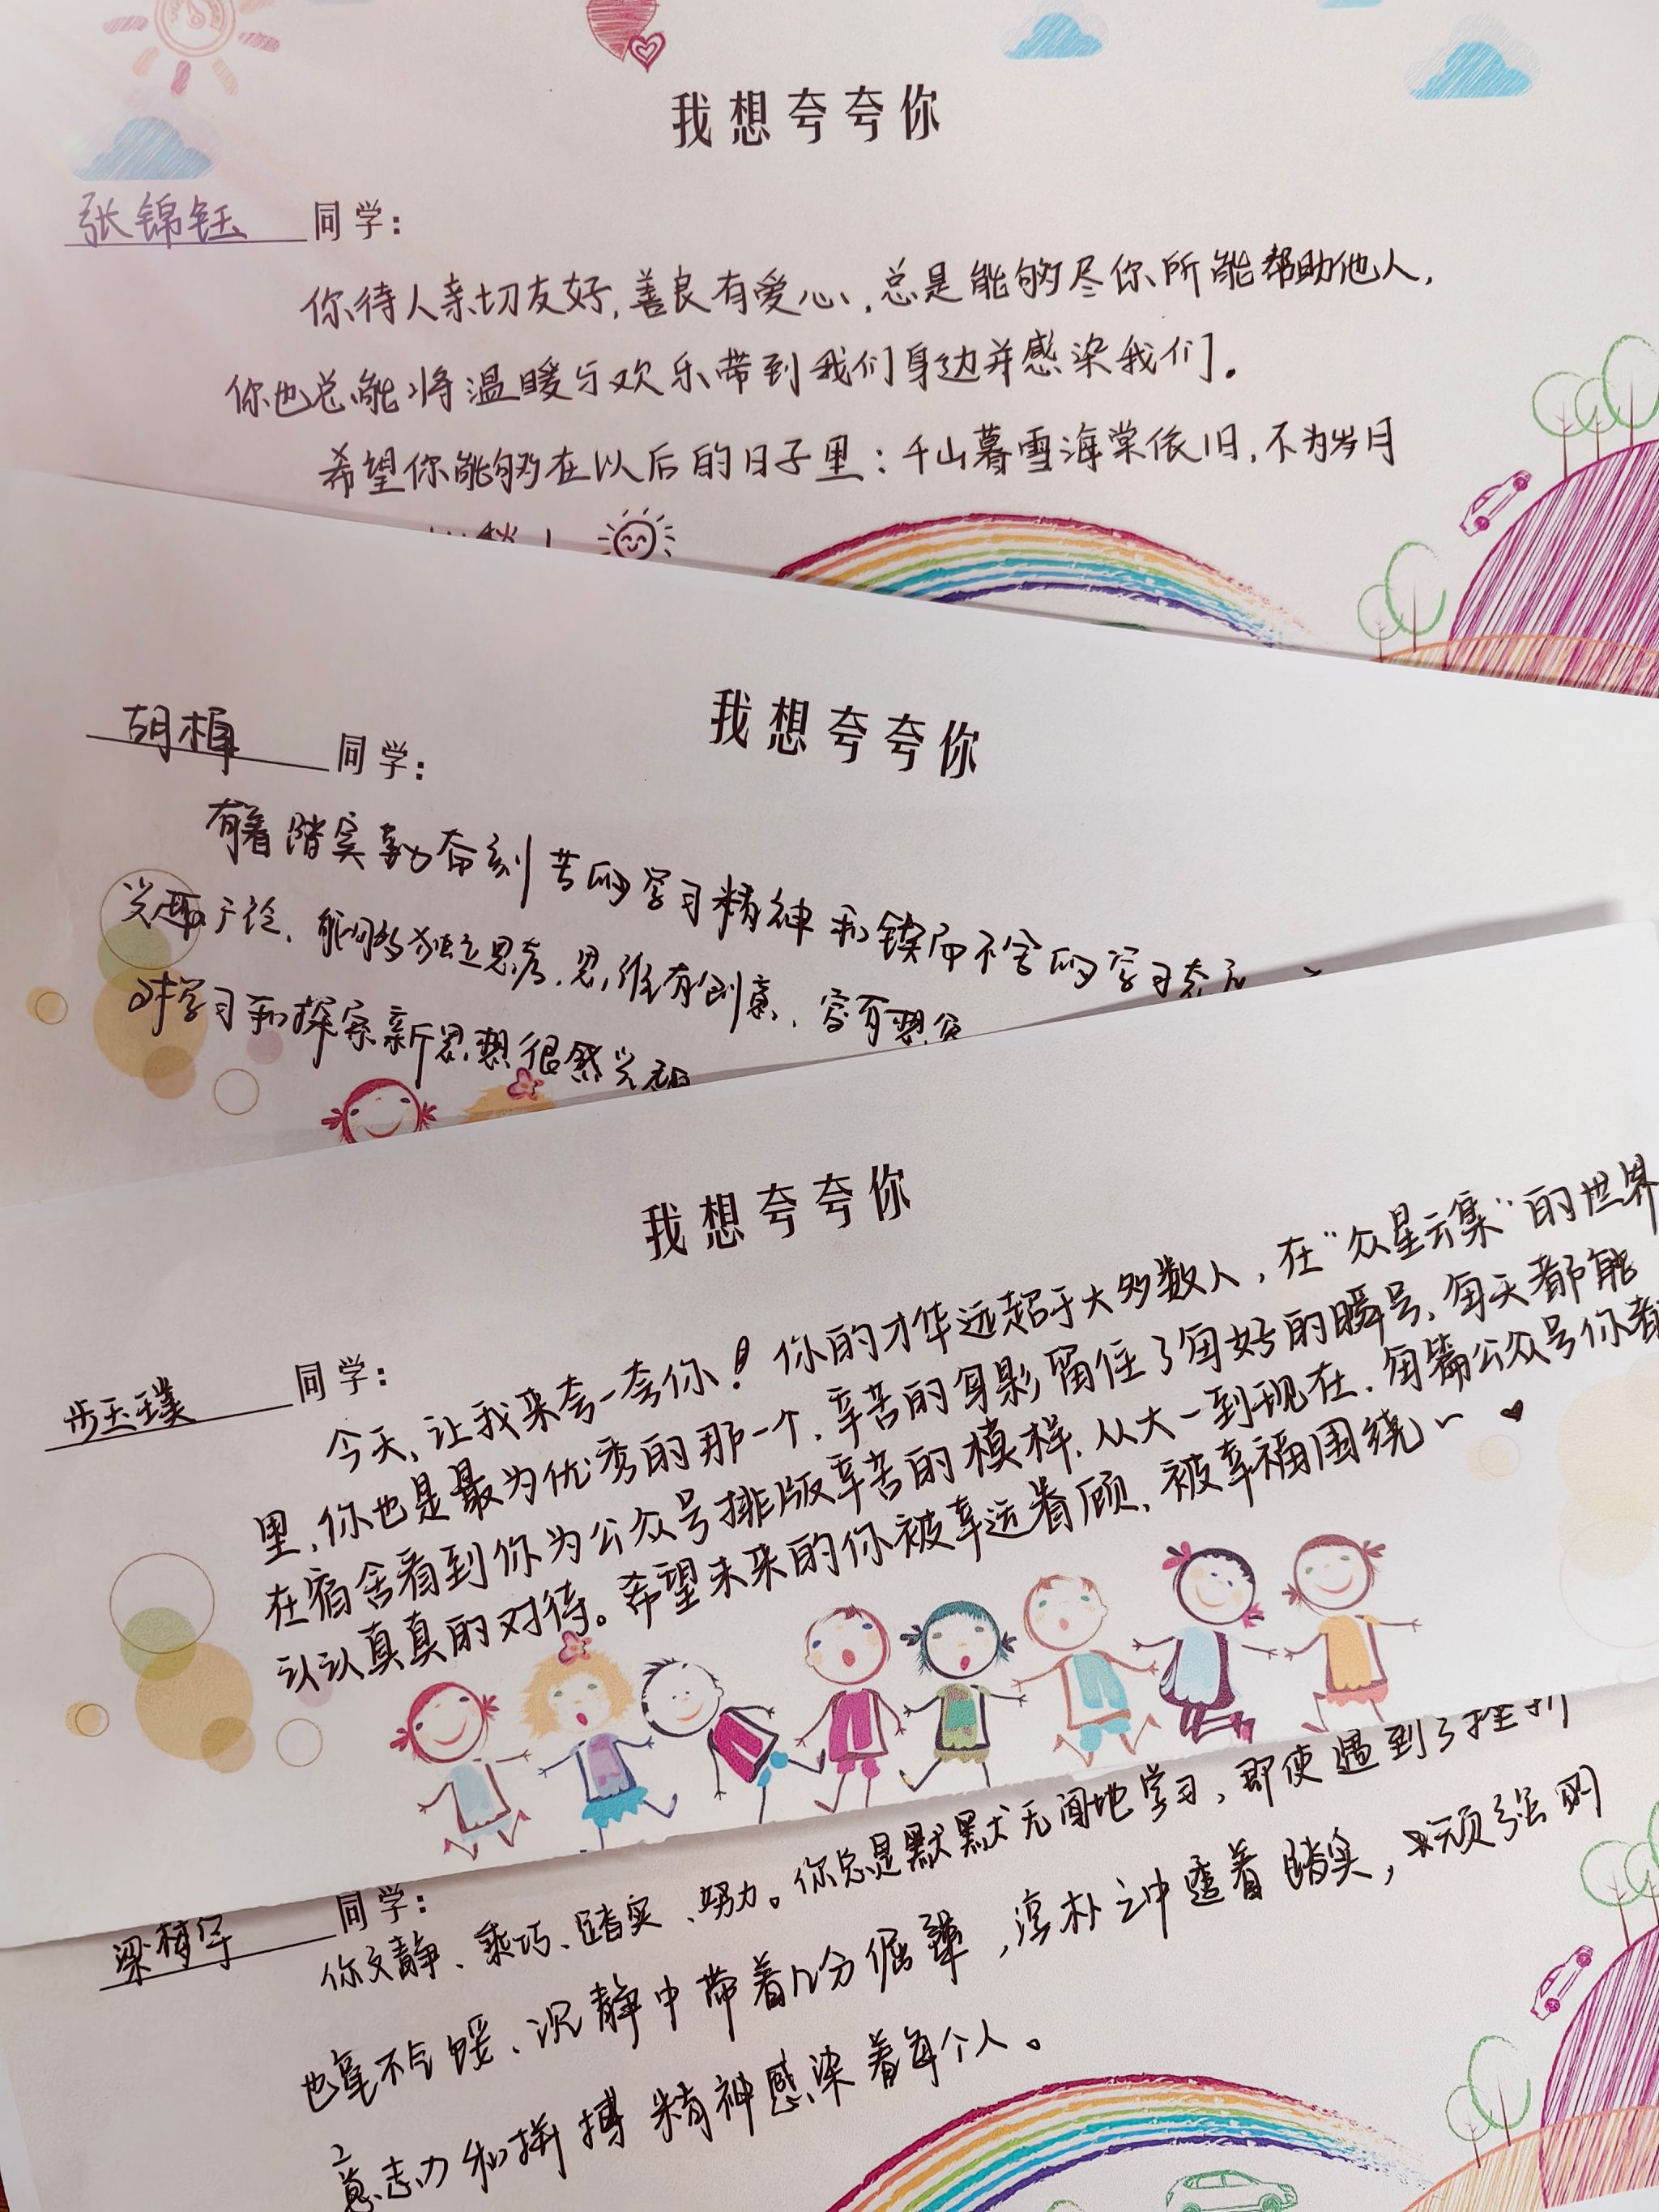 我想夸夸你
张锦钰 同学:
你待人亲切友好,善良有爱心,总是能够尽你所能帮助他人,
你也总能将温暖与欢乐带到我们身边并感染我们。
希望你能够在以后的日子里:千山暮雪海棠依旧,不为岁月
我想夸夸你
胡楠 同学:
有着踏实勤奋刻苦的学习精神和锲而不舍的学习态
兴趣广泛、能够独立思考,思维有创意,富有想
对学习和探索新思想很感兴
我想夸夸你
步玉璞 同学:
今天,让我来夸一夸你!你的才华远超于大多数人,在“众星云集”的世界
里,你也是最为优秀的那一个,辛苦的身影留住了每好的瞬号,每天都能
在宿舍看到你为公众号排版辛苦的模样,从大一到现在,每篇公众号你都
认认真真的对待。希望未来的你被幸运眷顾,被幸福围绕~♥
梁梦宇 同学:
你文静、乖巧、踏实、努力。你总是默默无闻地学习,即使遇到了挫折
也毫不气馁、沉静中带着几分倔犟,淳朴之中透着踏实,顽强的
意志力和拼搏精神感染着每个人。